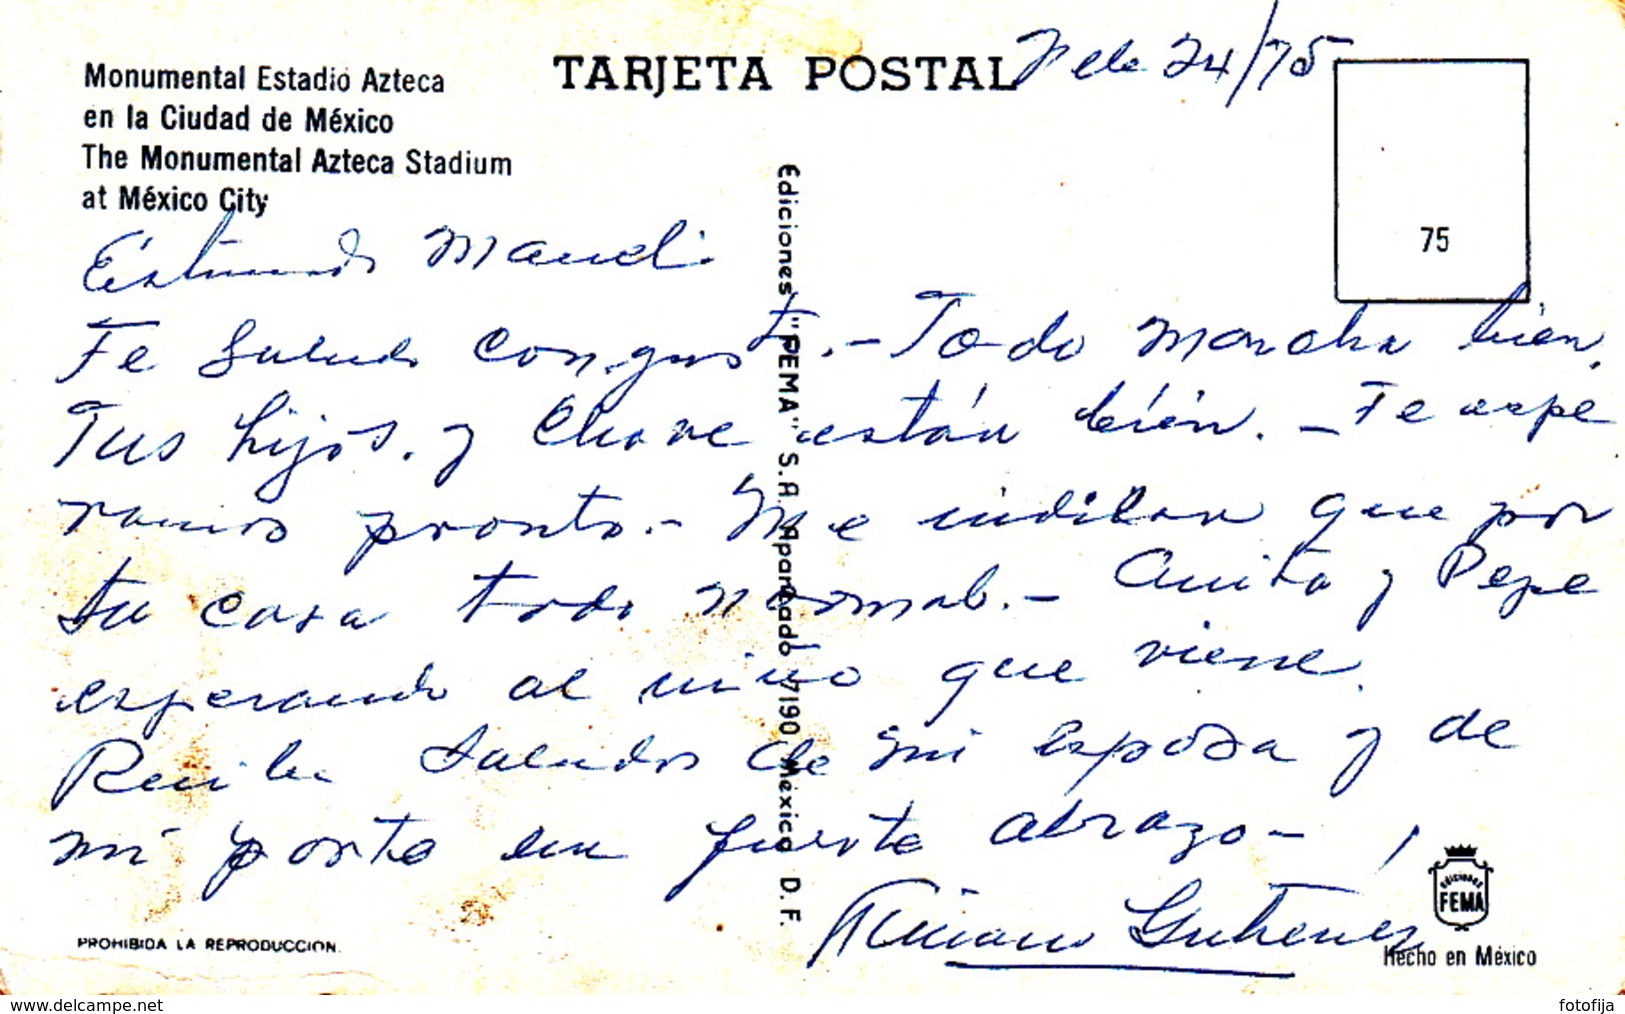 TARJETA POSTAL
Feb. 24/75
Monumental Estadio Azteca
en la Ciudad de México
The Monumental Azteca Stadium
at México City
75
Estimado Manuel:
Te saludo con gusto.- Todo marcha bien,
Tus hijos. y Chave están bien. - Te espe
ramos pronto.- Me indican que por
tu casa todo normal.- Anita y Pepe
esperando al niño que viene.
Recibe saludos de mi esposa y de
mi parte un fuerte abrazo-
Gutierrez
Ediciones "FEMA" S.A. Apartado 7190 México D.F.
PROHIBIDA LA REPRODUCCION.
EDICIONES
FEMA
Hecho en México
www.delcampe.net
fotofija